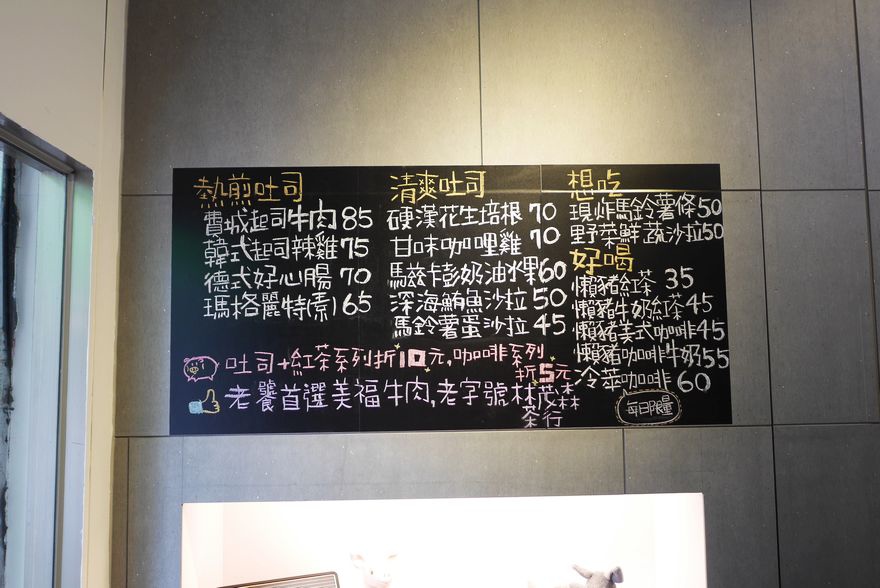 熱煎吐司
費城起司牛肉 85
韓式起司辣雞 75
德式好心腸 70
瑪格麗特(素) 65
清爽吐司
硬漢花生培根 70
甘味咖哩雞 70
馬茲卡彭奶油水果 60
深海鮪魚沙拉 50
馬鈴薯蛋沙拉 45
想吃
現炸馬鈴薯條 50
野菜鮮蔬沙拉 50
好喝
懶豬紅茶 35
懶豬牛奶紅茶 45
懶豬美式咖啡 45
懶豬咖啡牛奶 55
冷萃咖啡 60
每日限量
吐司+紅茶系列折10元,咖啡系列
折5元
老饕首選美福牛肉,老字號林茂森
茶行